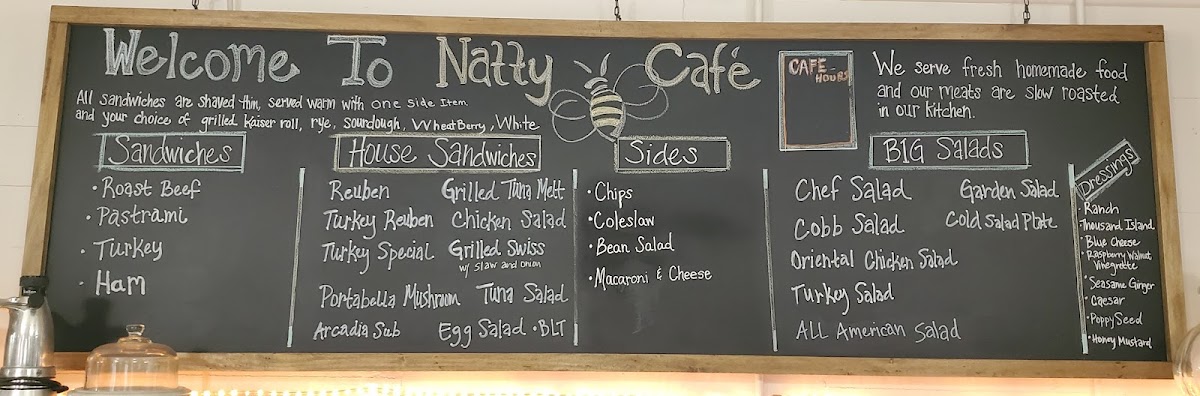 Welcome To Natty Café
CAFE
HOURS
We serve fresh homemade food
and our meats are slow roasted
in our kitchen.
All sandwiches are shaved thin, served warm with one side item
and your choice of grilled kaiser roll, rye, sourdough, WheatBerry, White
Sandwiches
• Roast Beef
• Pastrami
• Turkey
• Ham
House Sandwiches
Reuben Grilled Tuna Melt
Turkey Reuben Chicken Salad
Turkey Special Grilled Swiss
w/ slaw and onion
Portabella Mushroom Tuna Salad
Arcadia Sub Egg Salad • BLT
Sides
• Chips
• Coleslaw
• Bean Salad
• Macaroni & Cheese
BIG Salads
Chef Salad Garden Salad
Cobb Salad Cold Salad Plate
Oriental Chicken Salad
Turkey Salad
ALL American Salad
Dressings
• Ranch
• Thousand Island
• Blue Cheese
• Raspberry Walnut
Vinegrette
• Seasame Ginger
• Caesar
• Poppy Seed
• Honey Mustard